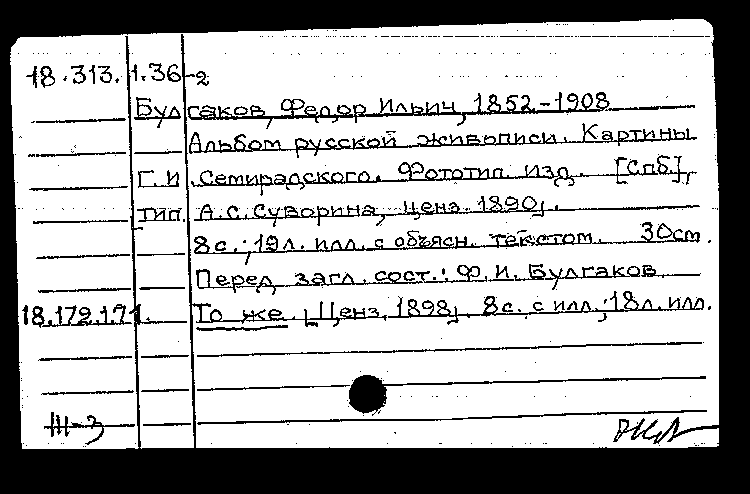 18.313.1.36-2
Булгаков, Федор Ильич, 1852-1908
Альбом русской живописи. Картины
Г.И. Семирадского. Фототип. изд. [Спб],
тип. А.С. Суворина, ценз. 1890].
8с.; 19л. илл. с объясн. текстом. 30см.
Перед загл. сост.: Ф.И. Булгаков
18.179.1.71. То же. [Ценз. 1898]. 8с. с илл.; 18л. илл.
III-3